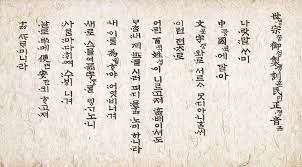 世宗御製訓民正音
나랏말ᄊᆞ미
中國에달아
文字와로서르ᄉᆞᄆᆞᆺ디아니ᄒᆞᆯᄊᆡ
이런젼ᄎᆞ로
어린百姓이니르고져홇배이셔도
ᄆᆞᄎᆞᆷ내제ᄠᅳ들시러펴디몯ᄒᆞᇙ노미하니라
내이ᄅᆞᆯ爲ᄒᆞ야어엿비너겨
새로스믈여듧字ᄅᆞᆯᄆᆡᇰᄀᆞ노니
사ᄅᆞᆷ마다ᄒᆡᅇᅧ수ᄫᅵ니겨
날로ᄡᅮ메便安킈ᄒᆞ고져
ᄒᆞᇙᄯᆞᄅᆞ미니라